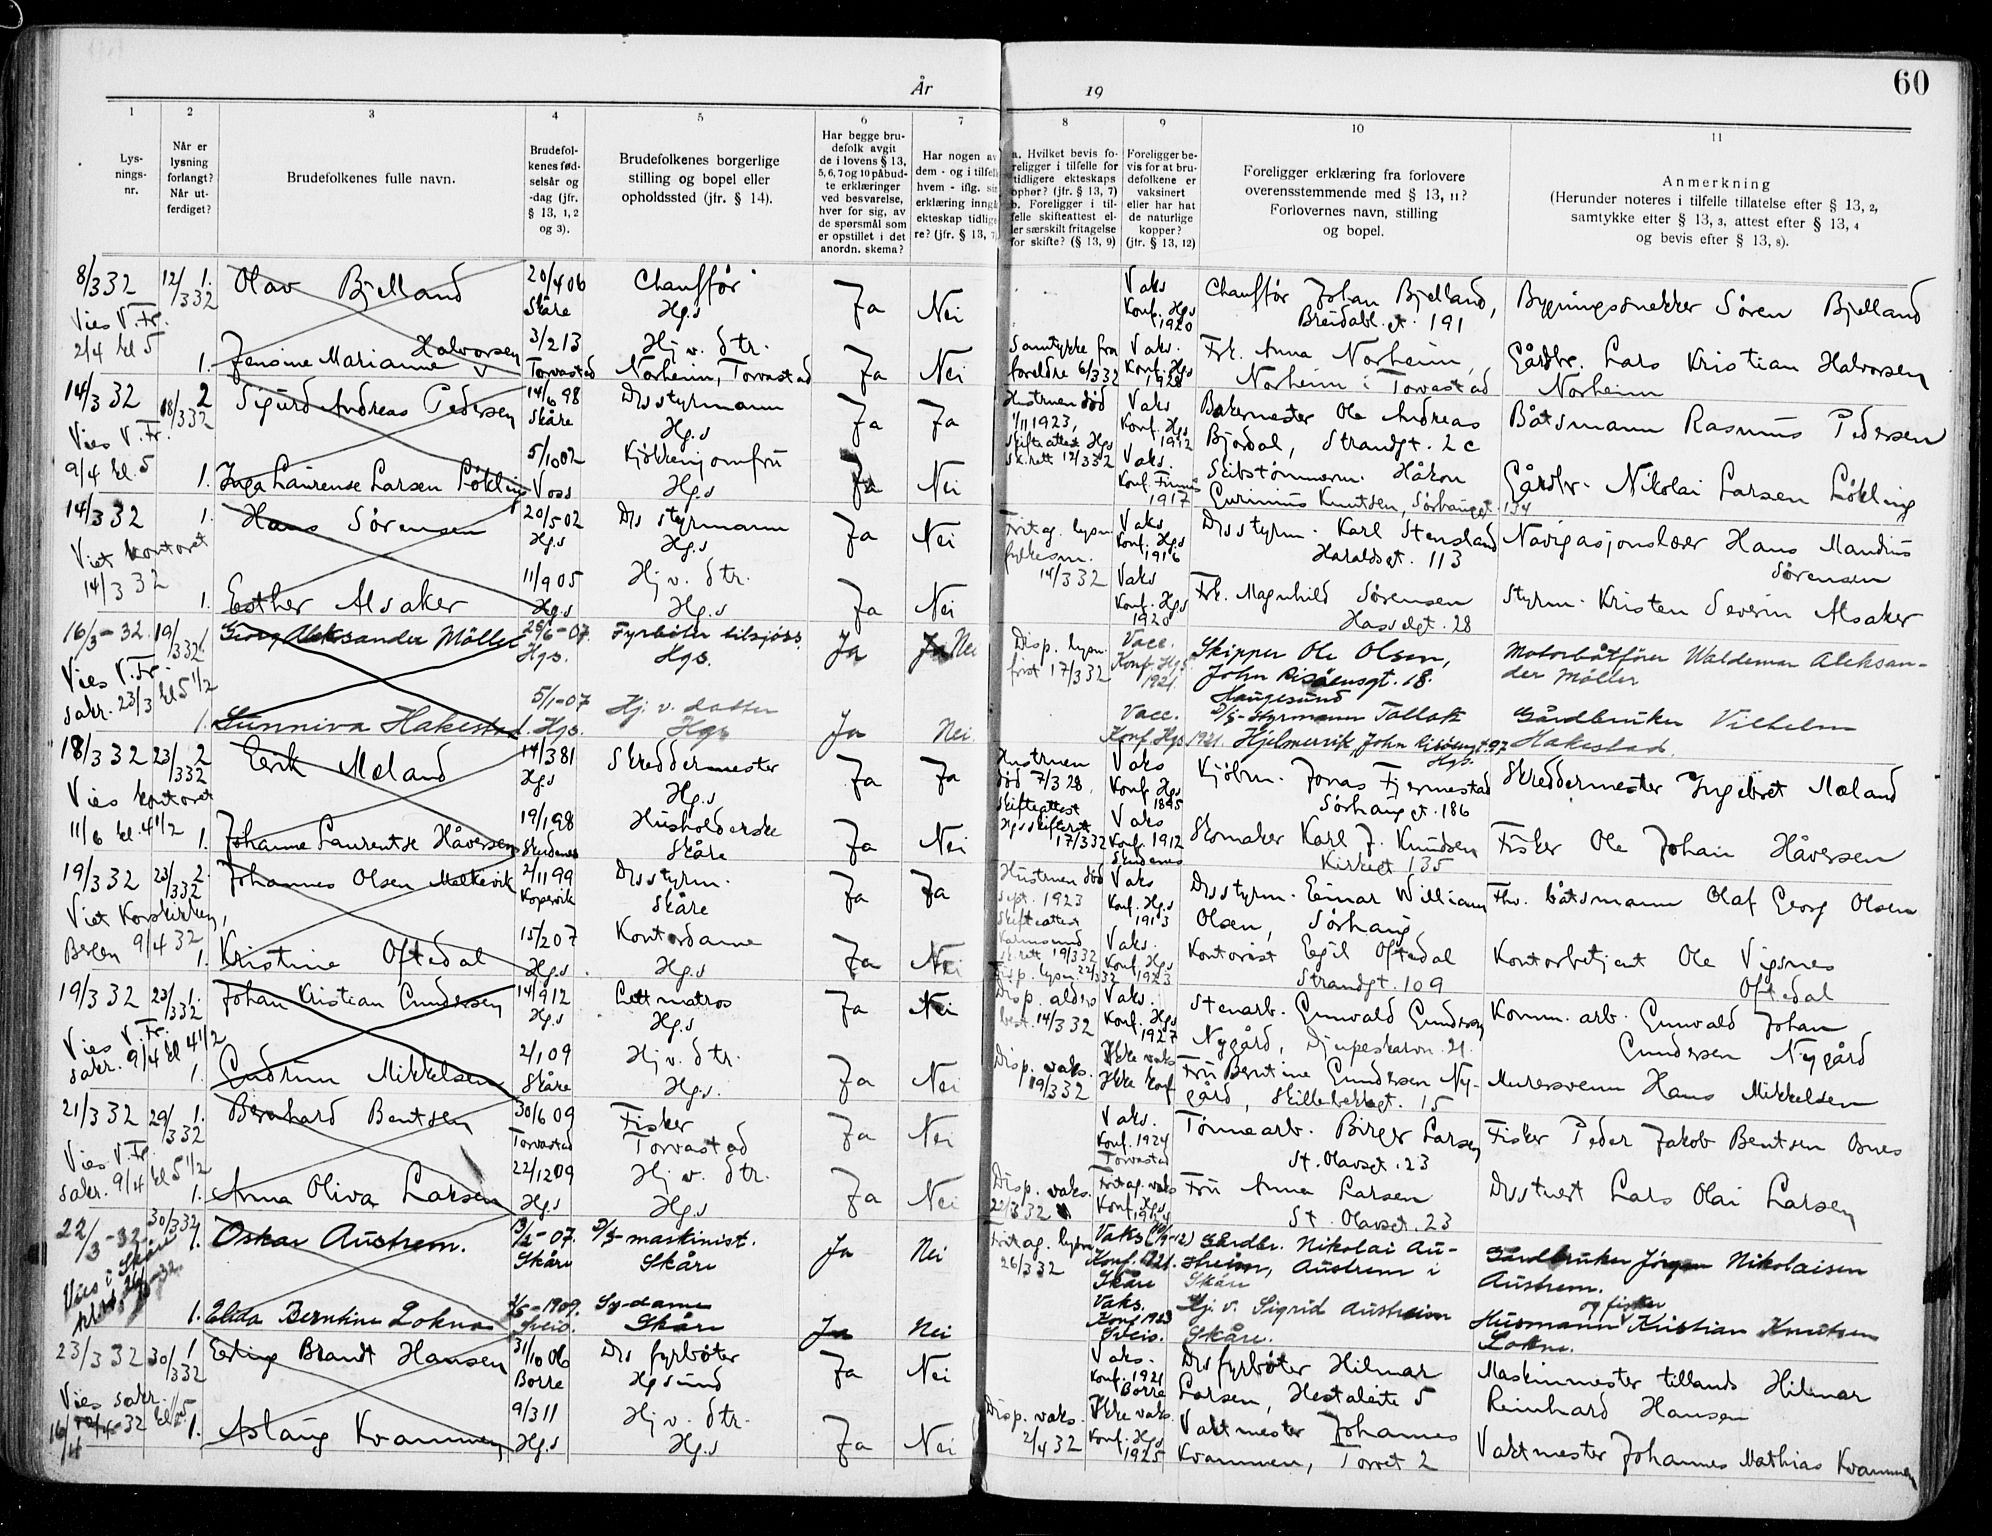 60
År 19
1 2 3 4 5 6 7 8 9 10 11
Lys-
nings-
nr.
Når er
lysning
forlangt?
Når ut-
ferdiget?
Brudefolkenes fulle navn.
Brudefol-
kenes fød-
selsår og
-dag (jfr.
§ 13, 1, 2
og 3).
Brudefolkenes borgerlige
stilling og bopel eller
opholdssted (jfr. § 14).
Har begge bru-
defolk avgit
de i lovens § 13,
5, 6, 7 og 10 påbud-
te erklæringer
ved besvarelse,
hver for sig, av
de spørsmål som
er opstillet i det
anordn. skema?
Har nogen av
dem - og i tilfelle
hvem - iflg. sin
erklæring inngå
ekteskap tidlige
re? (jfr. § 13, 7
a. Hvilket bevis fo-
religger i tilfelle for
tidligere ekteskaps
ophør? (jfr. § 13, 7)
b. Foreligger i til-
felle skifteattest el-
ler særskilt fritagelse
for skifte? (§ 13, 9)
Foreligger be-
vis for at bru-
defolkene er
vaksinert
eller har hat
de naturlige
kopper?
(jfr. § 13, 12)
Foreligger erklæring fra forlovere
overensstemmende med § 13, 11?
Forlovernes navn, stilling
og bopel.
Anmerkning
(Herunder noteres i tilfelle tillatelse efter § 13, 2,
samtykke efter § 13, 3, attest efter § 13, 4
og bevis efter § 13, 8).
8/3 32 12/3 32 1. Olav Bjelland 20/4 06 Skåre Chauffør Hg.s Ja Nei Vaks Konf. Hgs 1920 Chauffør Johan Bjelland, Breidabl.gt. 191 Bygningssnekker Søren Bjelland
Vies V.Fr.
2/4 kl 5
1. Jensine Marianne Halvorsen 3/2 13 Torvastad Hj v. dtr. Norheim, Torvastad Ja Nei Samtykke fra foreldre 6/3 32 Vaks. Konf. Hgs 1928 Frk. Anna Norheim, Norheim i Torvastad Gårdbr. Lars Kristian Halvorsen Norheim
14/3 32 18/3 32 2 Sigurd Andreas Pedersen 14/6 98 Skåre D/s styrmann Hg.s Ja Ja Hustruen død 1/11 1923, Skifteattest Hgs sk.rett 12/3 32 Vaks Konf. Hgs 1912 Bakermester Ole Andreas Bjordal, Strandgt. 2c Båtsmann Rasmus Pedersen
Vies V.Fr.
9/4 kl. 5
1. Inga Laurense Larsen Løkling 5/10 02 Voss Kjøkkenjomfru Hg.s Ja Nei Vaks. Konf. 1917 Skibstømmerm. Håkon Knutsen, Sørhauggt. 134 Gårdbr. Nikolai Larsen Løkling
14/3 32 1. Hans Sørensen 20/5 02 Hg.s D/s styrmann Hg.s Ja Nei Fritag. lysn. fylkesm. 14/3 32 Vaks Konf. Hgs 1916 D/s styrm. Karl Stensland Haraldsgt. 113 Navigasjonslærer Hans Mandius Sørensen
Viet kontoret
14/3 32
1. Esther Alsaker 11/9 05 Hg.s Hj v. dtr. Hg.s Ja Nei Vaks Konf. Hgs 1920 Frk. Magnhild Sørensen Hasselgt. 28 Styrm. Kristen Severin Alsaker
16/3-32 19/3 32 1. Georg Aleksander Möller 25/6-07. Hgs. Fyrböter tilsjøss Hgs. Ja Ja Nei Disp. lysn. frist 17/3 32 Vacc. Konf. Hgs. 1921. Skipper Ole Olsen, John Risöensgt. 18. Haugesund Motorbåtförer Waldemar Aleksan-
der Möller
Vies V.Fr.
sakr. 23/3 kl 5 1/2
1. Sunniva Hakestad 5/1-07 Hgs. Hj. v. datter Hgs Ja Nei Vacc. Konf. Hgs 1921. D/s-styrmann Tollak Hjelmervik, John Risöensgt. 97 Hgs. Gårdbruker Vilhelm Hakestad.
18/3 32 23/3 32 2 Eerik Mæland 14/3 81 Hg.s Skreddermester Hg.s Ja Ja Hustruen død 7/3 28, Skifteattest Hgs skifterett 17/3 32 Vaks Konf Hgs 1895 Kjøbm. Jonas Fjermestad Sørhauggt. 186 Skreddermester Ingebret Mæland
Vies kontoret
11/6 kl. 4 1/2
1. Johanne Laurentse Håversen 19/1 98 Skudenes Husholderske Skåre Ja Nei Vaks Konf. 1912 Skudenes Skomaker Karl J. Knudsen Kirkegt 135 Fisker Ole Johan Håversen
19/3 32 23/3 32 2. Johannes Olsen 2/11 99 Kopervik D/s styrm. Skåre Ja Ja Hustruen død sept. 1923 Skifteattest Karmsund sk.rett 19/3 32 Vaks Konf. Hgs 1913 D/s styrm. Einar William Olsen, Sørhaug Fhv. båtsmann Olaf Georg Olsen
Viet Korskirken,
Bergen 9/4 32
1. Kristine Oftedal 15/2 07 Hg.s. Kontordame Hg.s Ja Nei Disp. lysn. 22/3 32 Vaks. Konf. Hgs 1923 Kontorist Egil Oftedal Strandgt. 109 Kontorbetjent Ole Vigsnes Oftedal
19/3 32 23/3 32 1. Johan Kristian Gundersen 14/9 12 Hg.s Lettmatros Hg.s Ja Nei Disp. alders best. 14/3 32 Vaks. Konf. Hgs 1927 Stenarb. Gunvald Gundersen Nygård, Djupeskarvn. 21. Komm. arb. Gunvald Johan Gundersen Nygård
Vies V.Fr.
sakr. 9/4 kl 4 1/2
1. Gudrun Mikkelsen 2/1 09 Skåre Hj v. dtr. Hg.s. Ja Nei Disp. vaks. 19/3 32 Ikke vaks Ikke konf Fru Berntine Gundersen Ny-
gård, Skillebekkgt. 15 Murersvenn Hans Mikkelsen
21/3 32 29/3 32 1. Bernhard Bentsen 30/6 09 Torvastad Fisker Torvastad Ja Nei Vaks. Konf. 1924 Torvastad Tønnearb. Birger Larsen St. Olavsgt. 23 Fisker Peder Jakob Bentsen Osnes
Vies V.Fr.
sakr. 9/4 kl 5 1/2
1. Anna Oliva Larsen 22/12 09 Hg.s Hj v. dtr. Hg.s Ja Nei Disp. vaks. 22/3 32 Fritag. vaks Konf. Hgs 1924 Fru Anna Larsen St. Olavsgt. 23 D/s stuert Lars Olai Larsen
22/3-32 30/3 32 1. Oskar Austrem. 13/2-07. Skåre D/s-maskinist. Skåre Ja Nei Fritag. lysn. 26/3 32 Vaks. Konf. 1921. Skåre Gårdbr. Nikolai Au-
streim, Austrem i Skåre Gårdbruker Jörgen Nikolaisen Austrem.
Vies i Skåre
1. Elda Berntine Lokna Sveio. Sy-dame Skåre Ja Nei Vaks. Konf 1923 Sveio. Hj. v. Sigrid Austreim Skåre. Husmann og fisker Kristian Knutsen Lokna.
23/3 32 30/3 32 1 Erling Brandt Hansen 31/10 06 Borre D/s fyrbøter Hgsund Ja Nei Vaks. Konf. 1921 Borre D/s fyrbøter Hilmar Larsen, Hestaleite 5 Maskinmester tillands Hilmar Reinhard Hansen
Vies sakr.
16/4
1. Aslaug Kvammen 9/3 11 Hg.s Hj v. dtr. Hg.s Ja Nei Disp. vaks. 2/4 32 Ikke vaks. Konf. Hgs 1925 Vaktmester Johannes Kvammen, Torvet 2 Vaktmester Johannes Mathias Kvammen